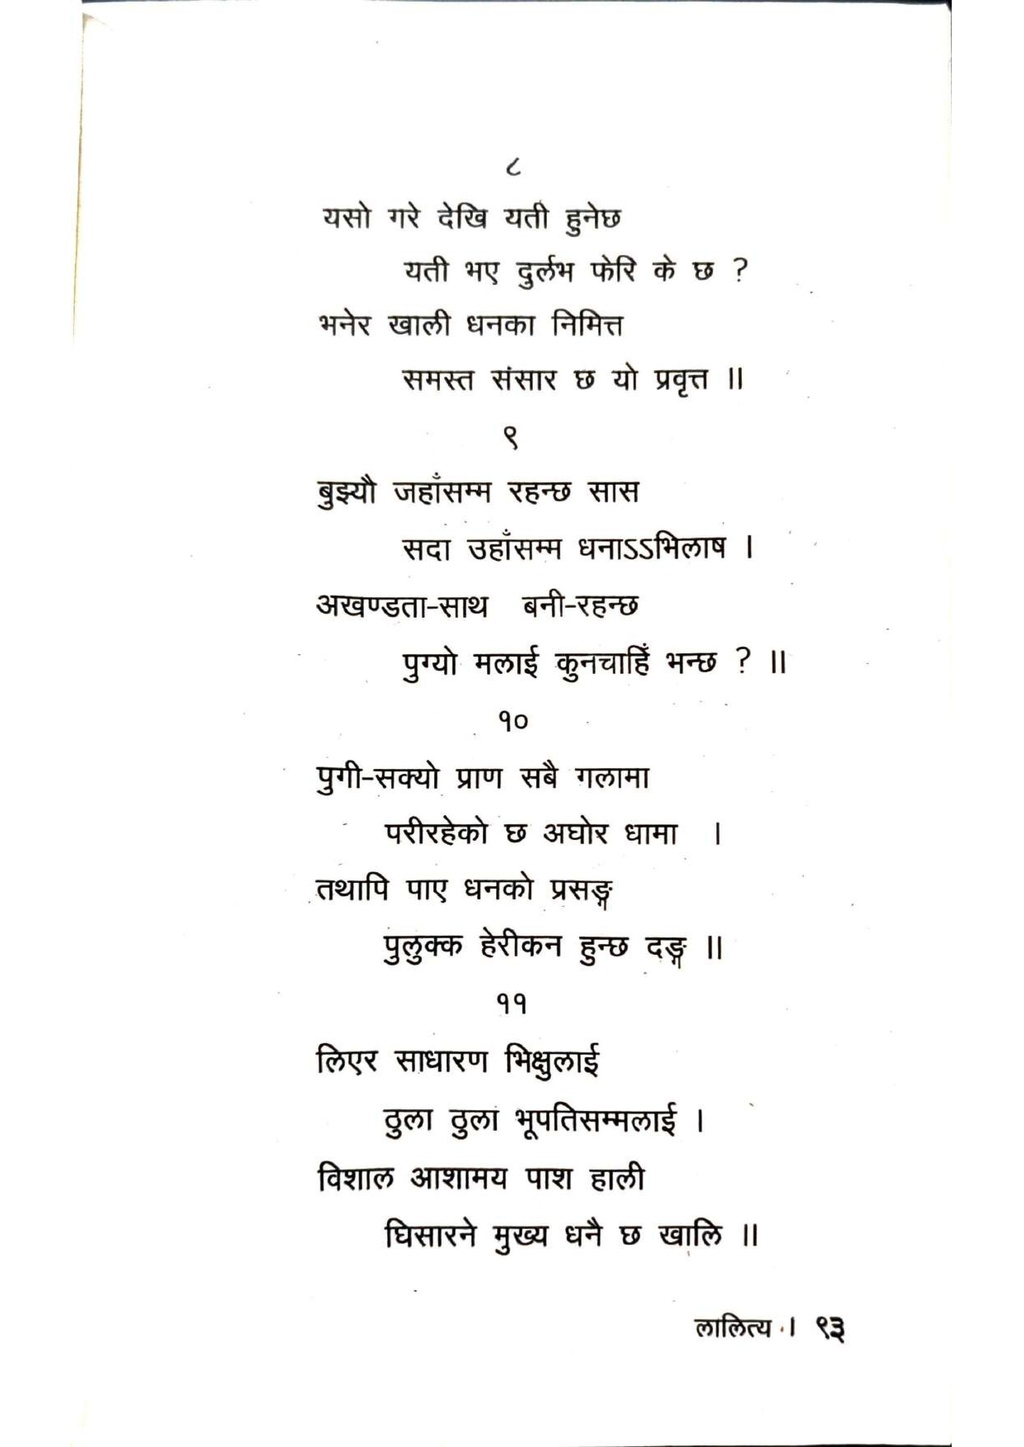 ८
यसो गरे देखि यती हुनेछ
यती भए दुर्लभ फेरि के छ ?
भनेर खाली धनका निमित्त
समस्त संसार छ यो प्रवृत्त ॥
९
बुझ्यौ जहाँसम्म रहन्छ सास
सदा उहाँसम्म धनाऽऽभिलाष ।
अखण्डता-साथ बनी-रहन्छ
पुग्यो मलाई कुनचाहिँ भन्छ ? ॥
१०
पुगी-सक्यो प्राण सबै गलामा
परीरहेको छ अघोर धामा ।
तथापि पाए धनको प्रसङ्ग
पुलुक्क हेरीकन हुन्छ दङ्ग ॥
११
लिएर साधारण भिक्षुलाई
ठुला ठुला भूपतिसम्मलाई ।
विशाल आशामय पाश हाली
घिसारने मुख्य धनै छ खालि ॥
लालित्य । ९३